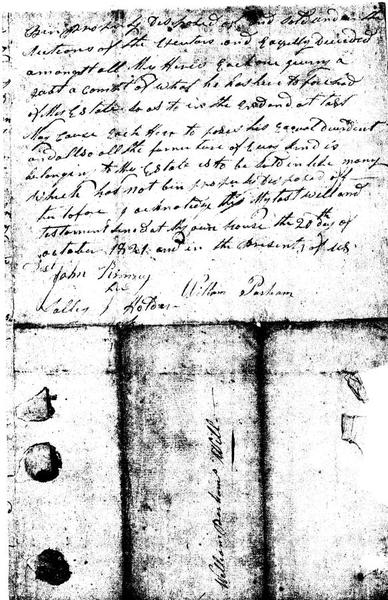 Bin properly Disposed of and Sold and at the
actions of the Executors and Equelly Devided
amongst all My Heirs Each one giveing a
Just a Count of what he has here to fore had
of My Estate so as to in the End and at last
May Cause Each Heir to poses his Equal Dividend
and also all the furneture of Every kind is
belonging to My Estate is to be Sold in like manner
Which has not bin properly Disposed of
hertofore I acknoledge this My last will and
testament Send at My own house the 20th day of
october 1821 and in the Presents of us
Test
John
her
William Parham
Salley Holder
William Parham's Will